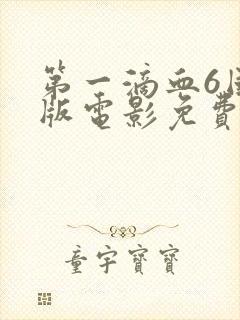 第一滴血6国
版电影免费
童宇寶寶